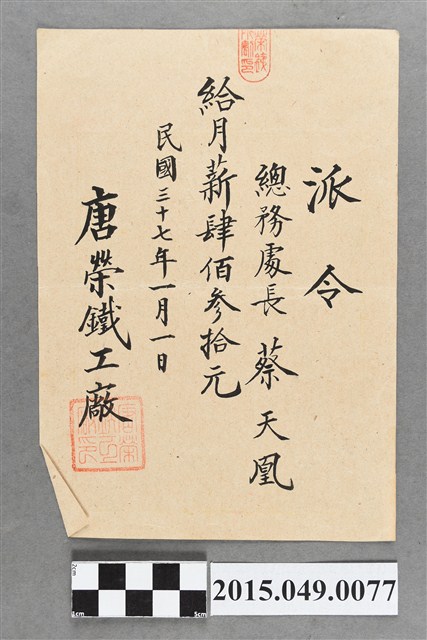 派令
總務處長 蔡天凰
給月薪肆佰參拾元
民國三十七年一月一日
唐榮鐵工廠
2cm
1cm
5cm
2015.049.0077